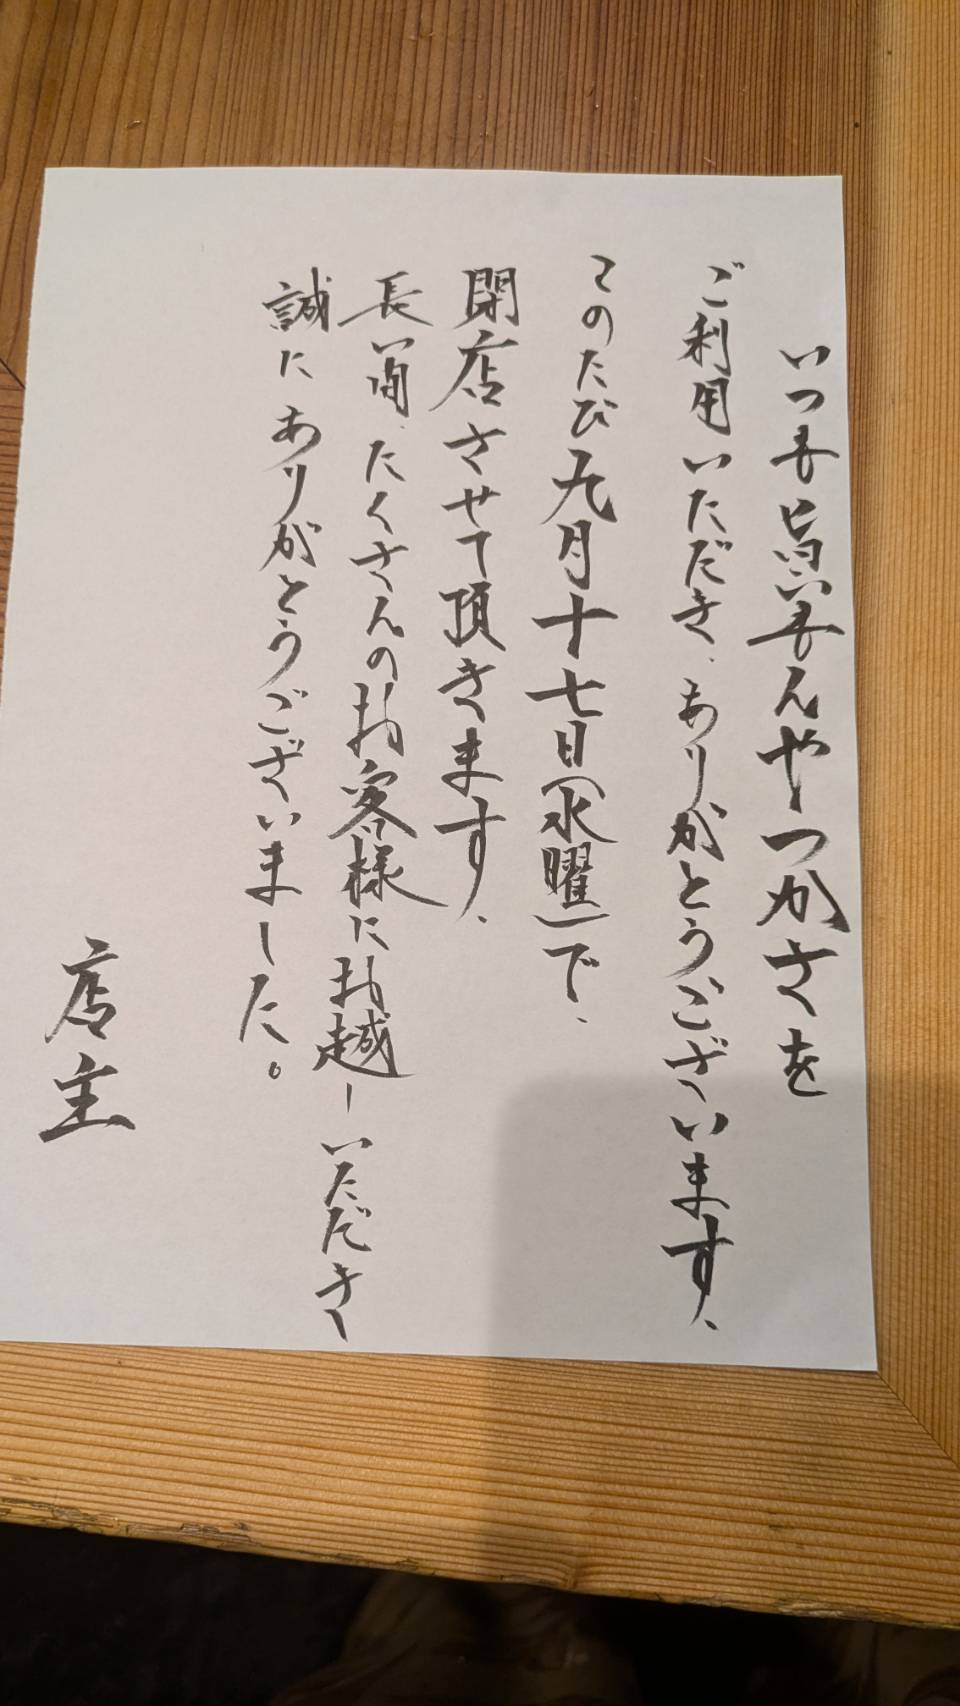 いつも旨いもんやつかさを
ご利用いただき、ありがとうございます、
このたび九月十七日(水曜)で、
閉店させて頂きます、
長い間、たくさんのお客様にお越しいただき
誠にありがとうございました。
店主